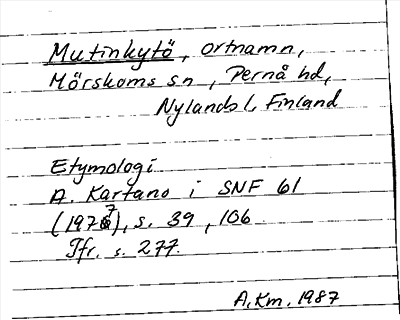 Mutinkytö, ortnamn,
Mörskoms sn, Pernå hd,
Nylands l, Finland
Etymologi
A. Kartano i SNF 61
(1977), s. 39, 106
Jfr. s. 277.
A.Km. 1987